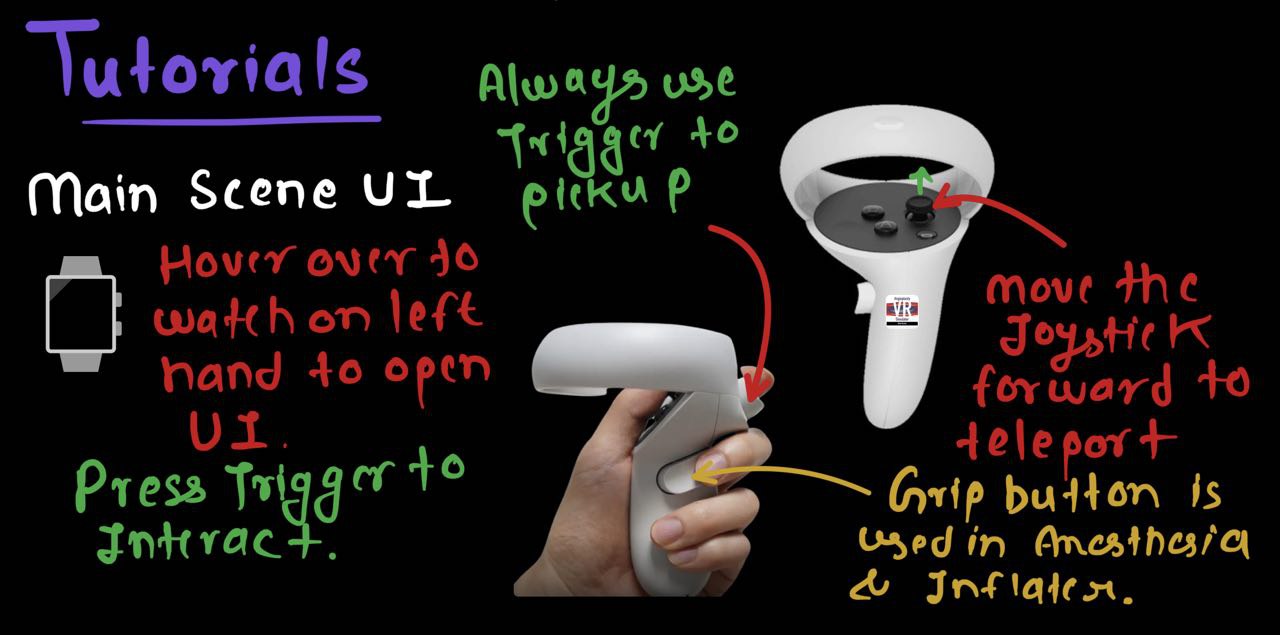 Tutorials
Main Scene UI
Hover over to
watch on left
hand to open
UI.
Press Trigger to
Interact.
Always use
Trigger to
pickup
VR
move the
Joystick
forward to
teleport
Grip button is
used in Anesthesia
& Inflater.